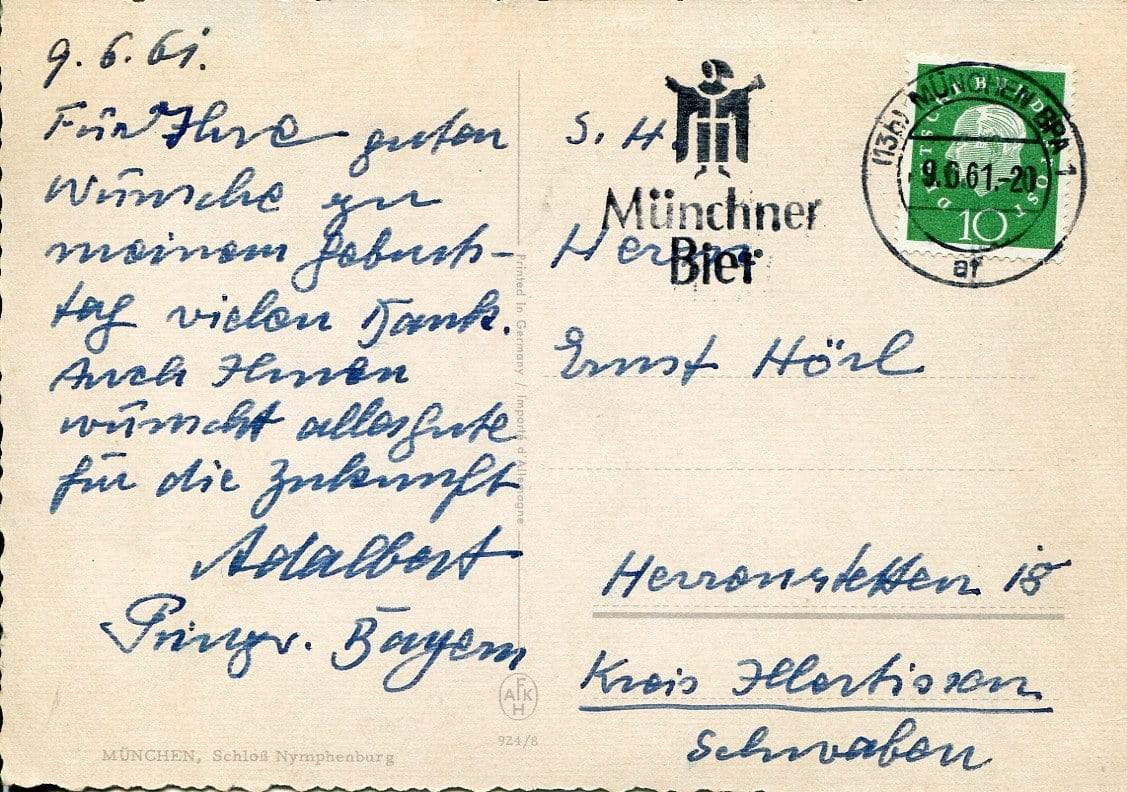 9.6.61.
Für Ihre guten
Wünsche zu
meinem Geburts-
tag vielen Dank.
Auch Ihnen
wünscht alles Gute
für die Zukunft
Adalbert
Prinz v. Bayern
MÜNCHEN, Schloß Nymphenburg
Printed in Germany / Importé d'Allemagne
AFKH
924/8
S. H.
Münchner
Bier
DEUTSCHE BUNDESPOST
10
(13b) MÜNCHEN BPA 1
9.6.61.-20
af
Herrn
Ernst Hörl
Herrenstetten 18
Kreis Illertissen
Schwaben